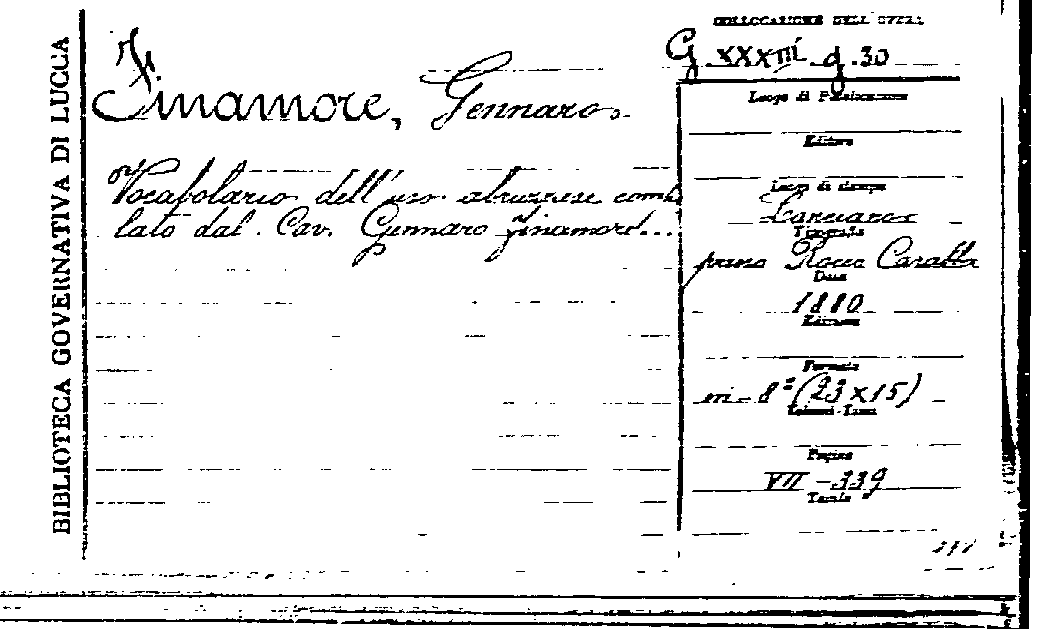 BIBLIOTECA GOVERNATIVA DI LUCCA
Finamore, Gennaro.
Vocabolario dell'uso abruzzese compi
lato dal Cav. Gennaro Finamore...
COLLOCAZIONE DELL'OPERA
G XXXIII g. 30
Luogo di Pubblicazione
Editore
Luogo di stampa
Lanciano
Tipografia
presso Rocco Carabba
Data
1880
Edizione
Formato
in-8° (23x15)
Volumi-Tomi
Pagine
VII-339
Tavole